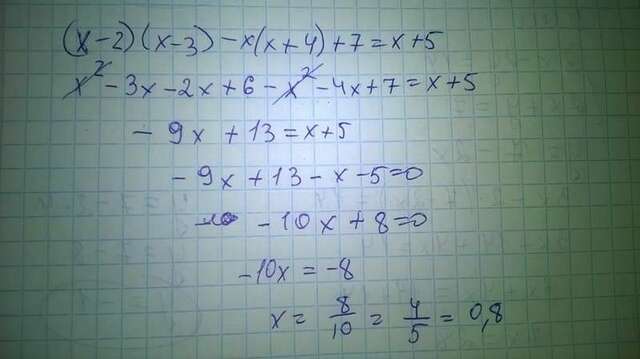 (x-2)(x-3)-x(x+4)+7=x+5
x²-3x-2x+6-x²-4x+7=x+5
-9x+13=x+5
-9x+13-x-5=0
-10x+8=0
-10x=-8
x=8/10=4/5=0,8